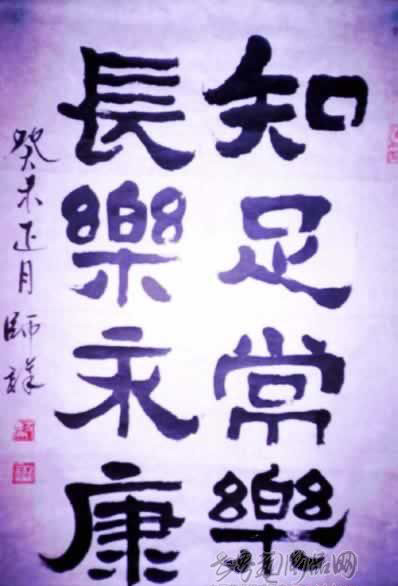 知足常樂
長樂永康
癸未正月師祥